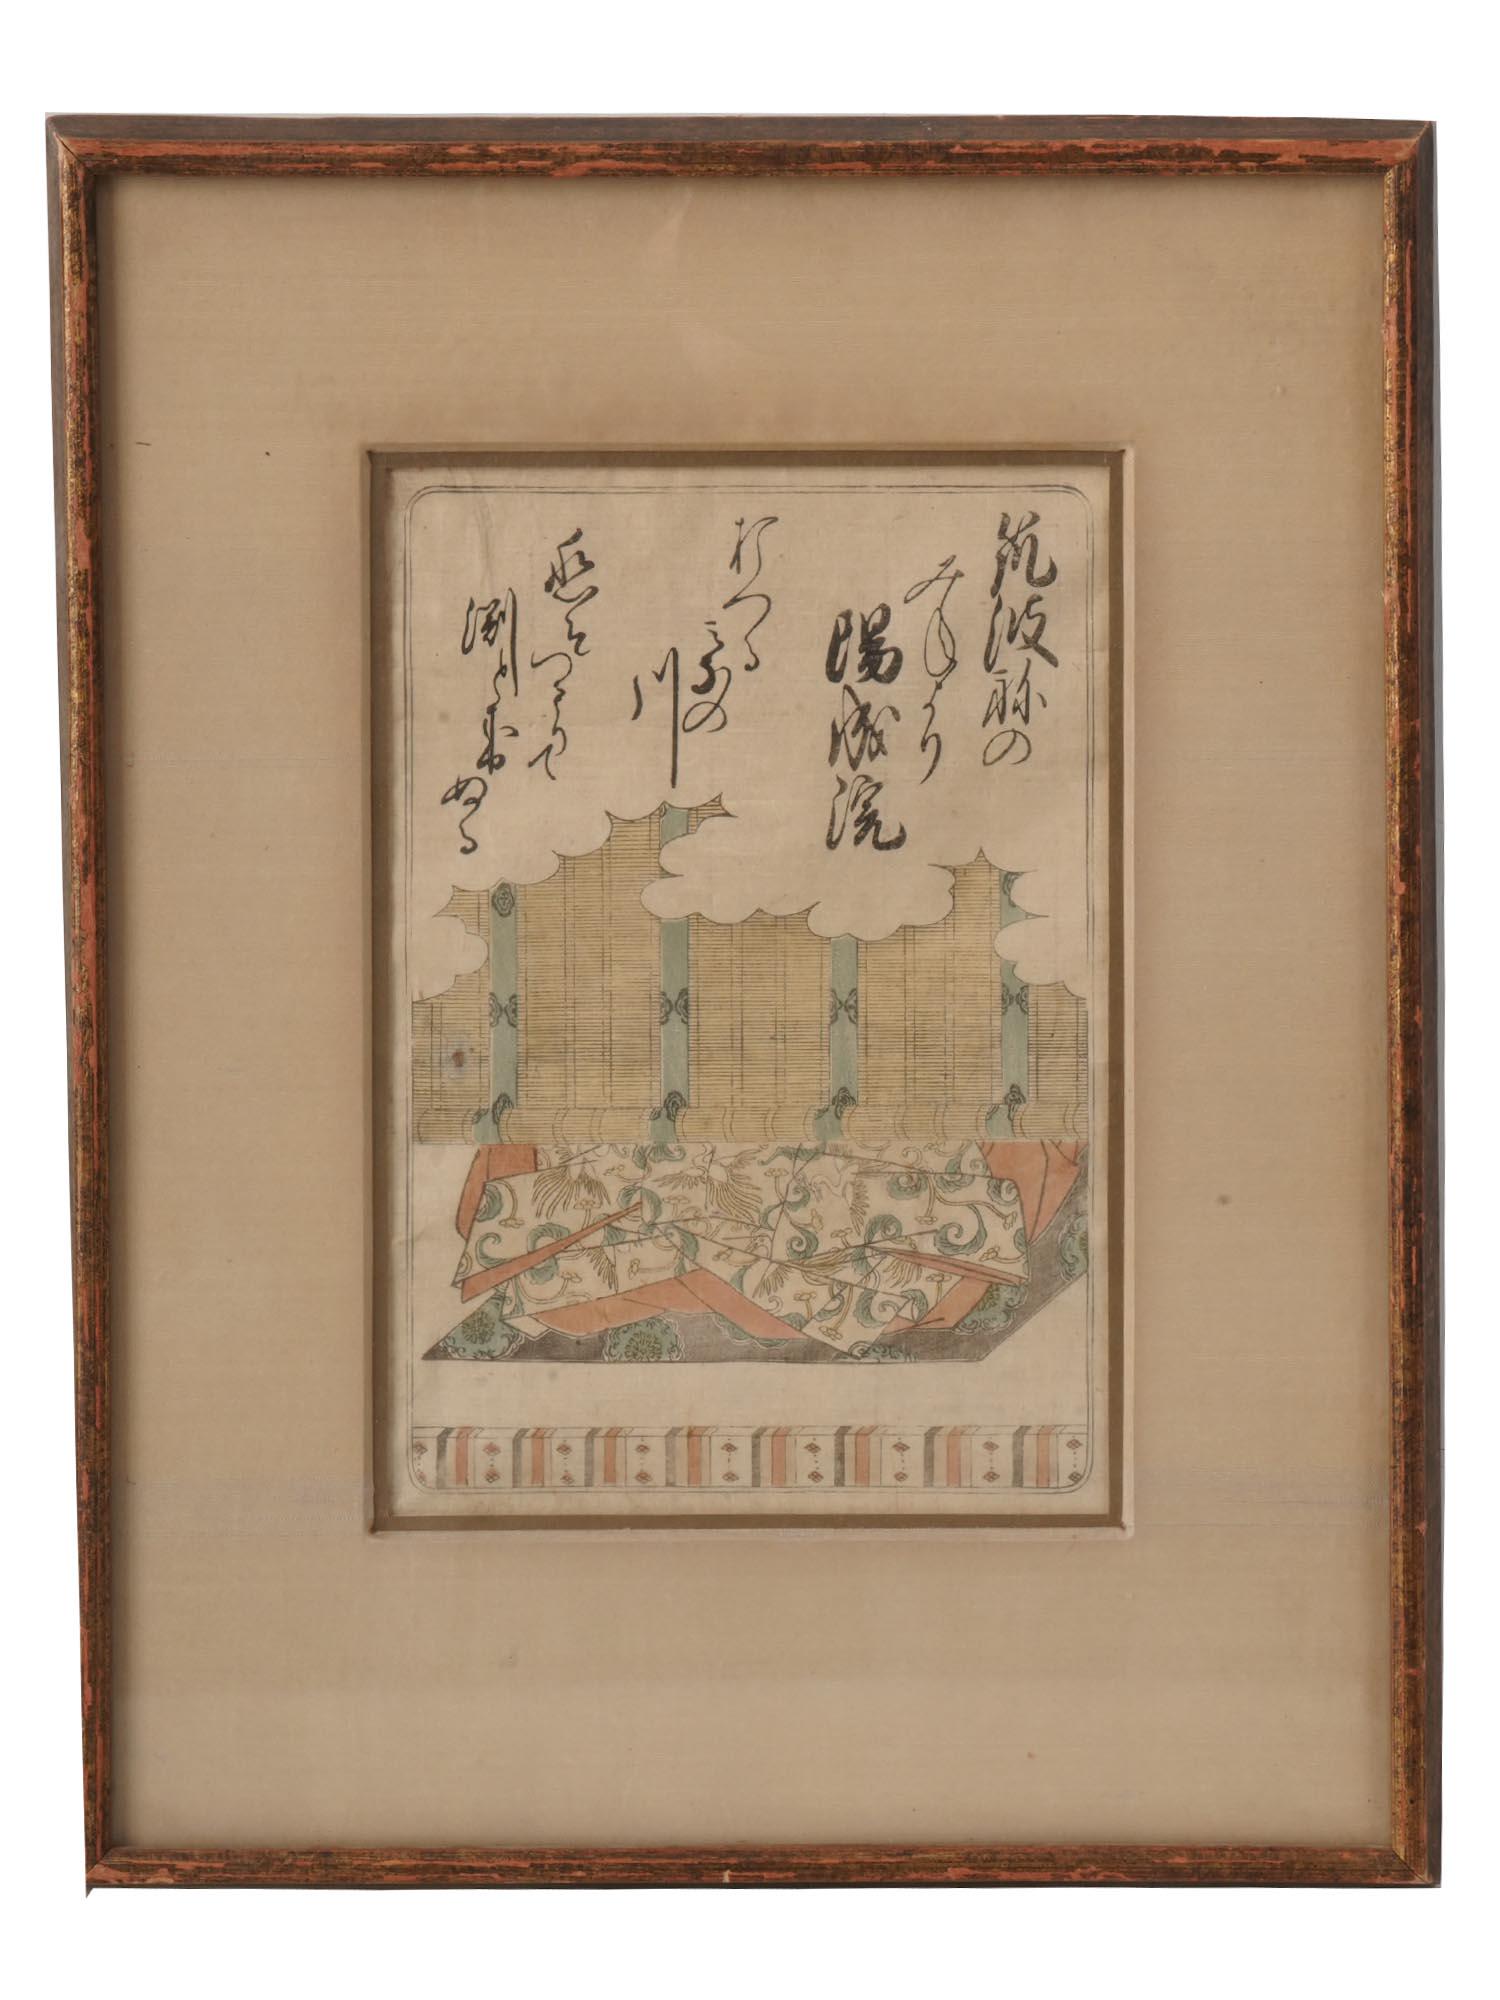 筑波祢の
みねより
陽成院
おつる
みなの
川
恋そ
つもりて
渕と成
ぬる